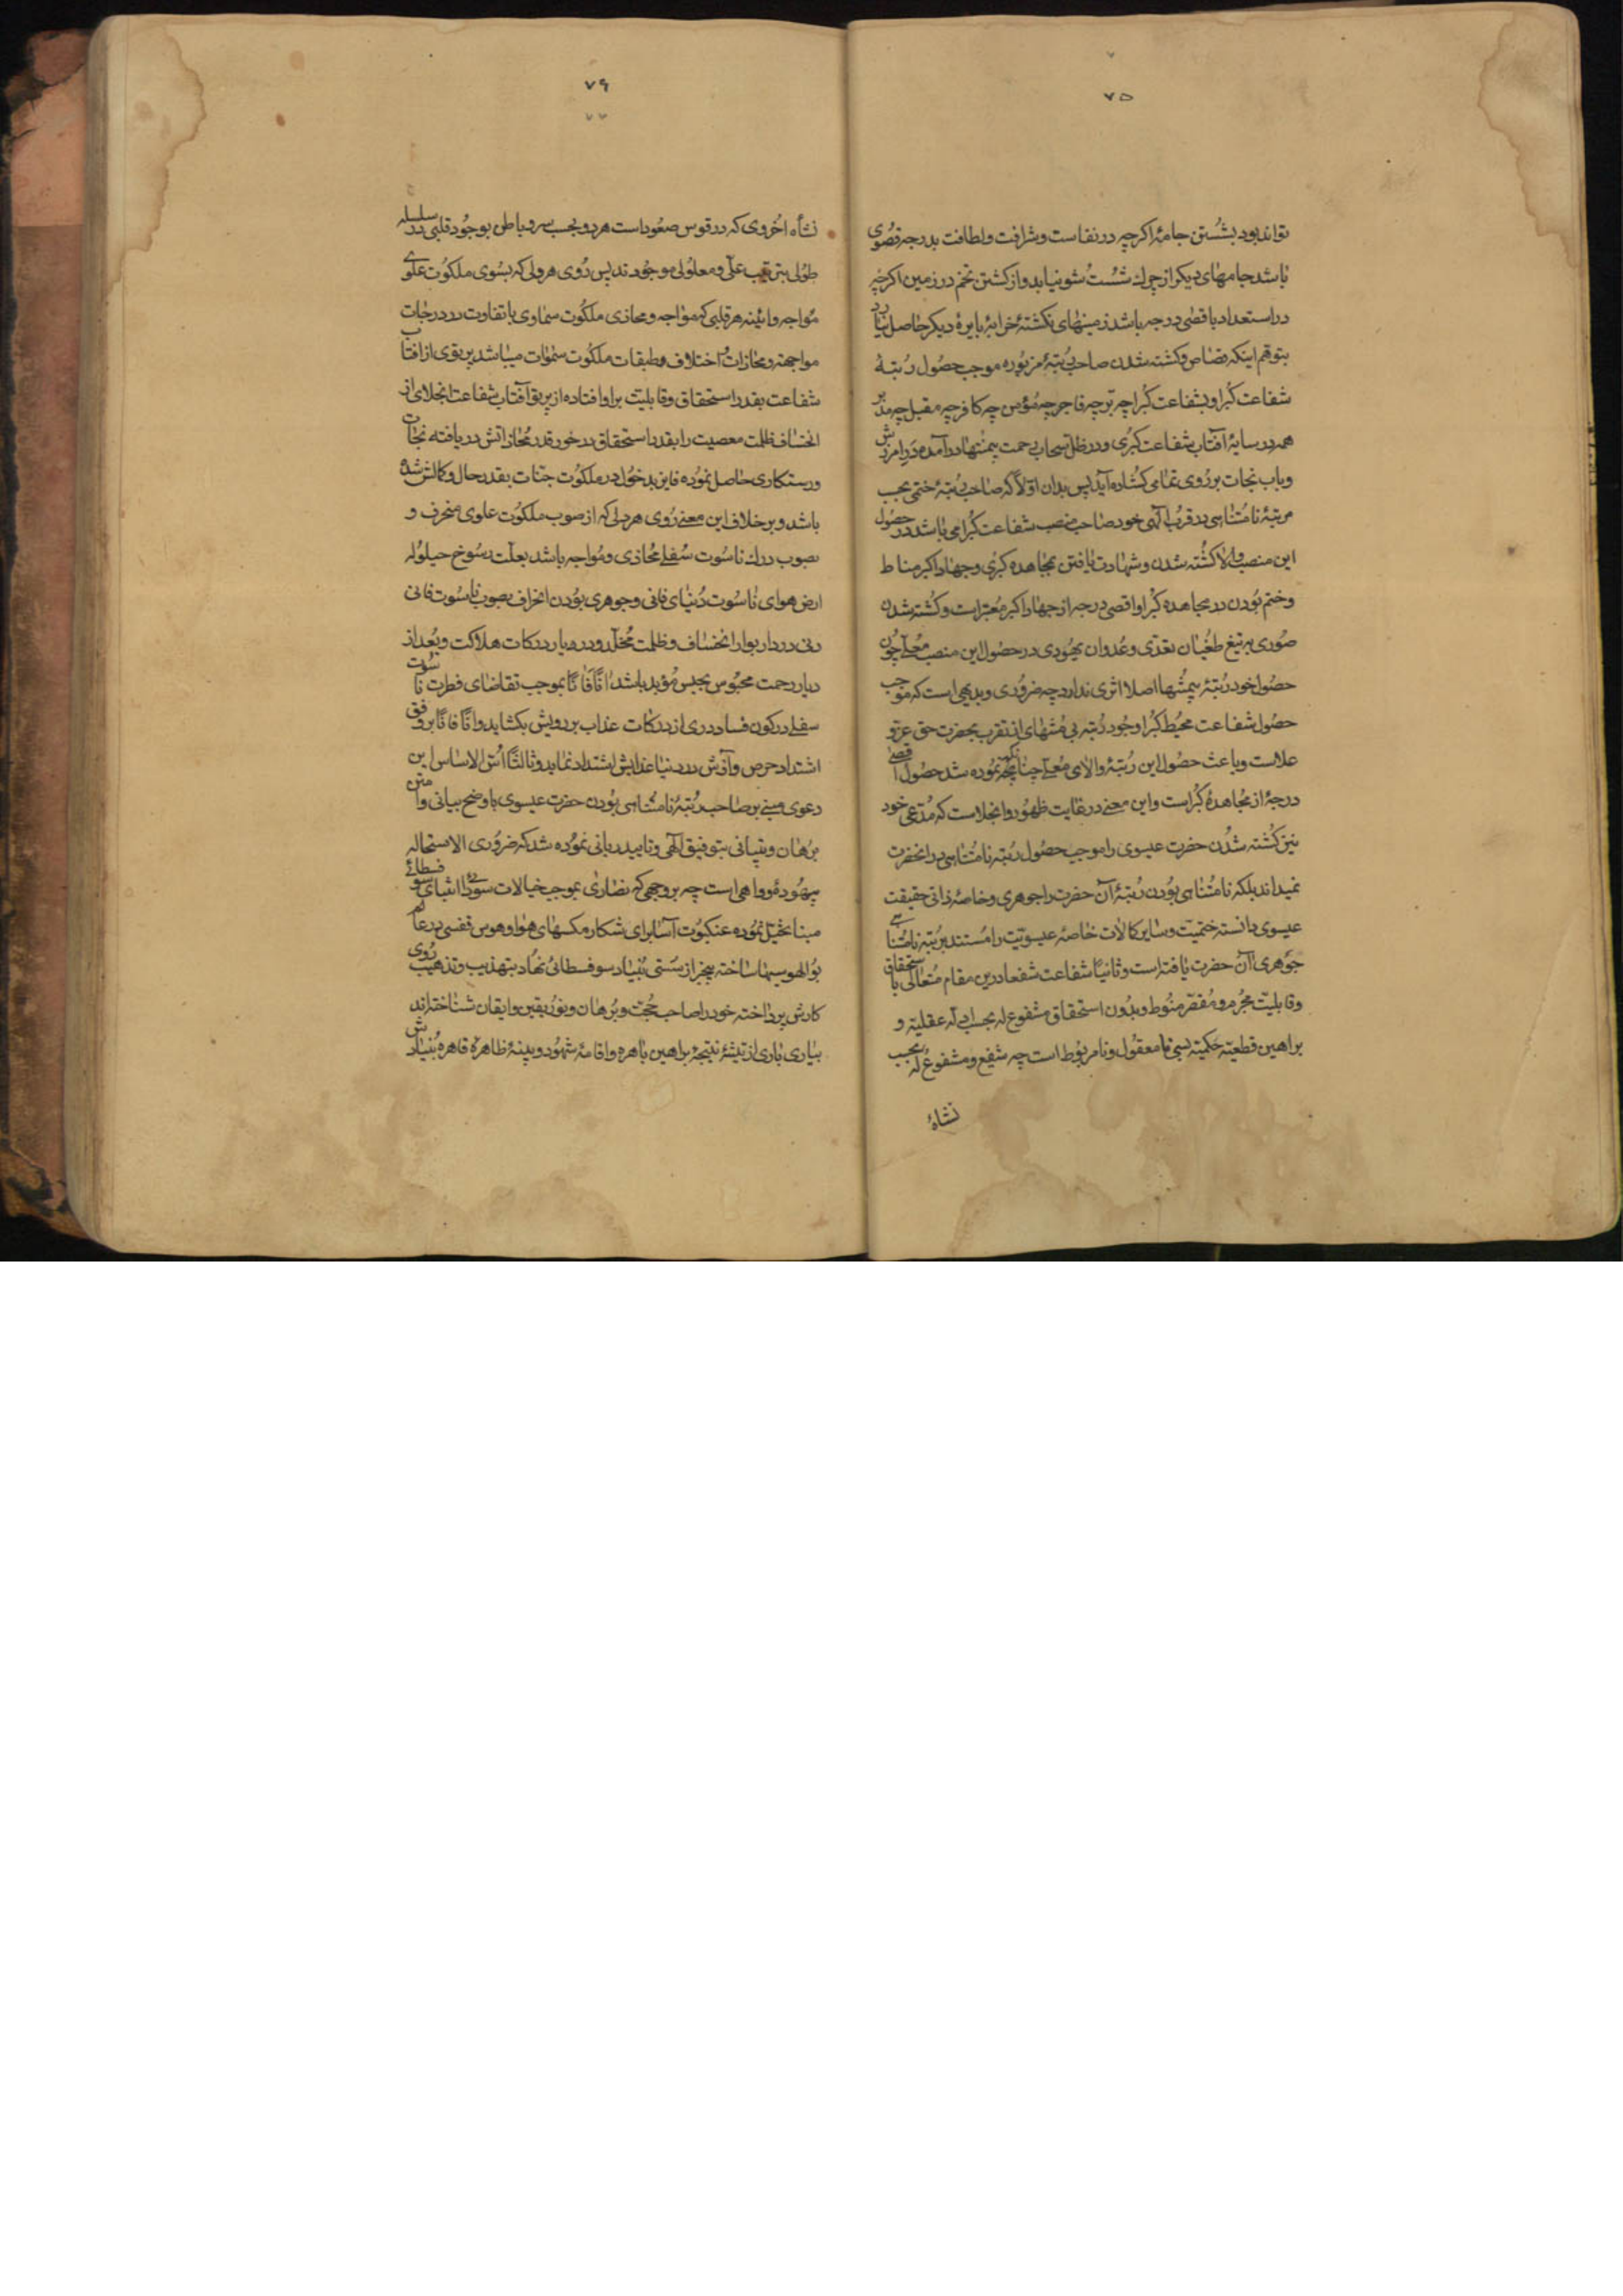 ۷۵
تواند بود بشُستن جامهٔ اکرچه در نفاست و شرافت و لطافت بدرجه قصُوی
باشد جامهای دیکر از چرك شُست شو نیابد و از کشتن تخم در زمین اکرچه
در استعداد باقصٰی درجه باشد زمینهای نکشتهٔ خرابهٔ بایرهٔ دیکر حاصل نیارد
بتوهّم اینکه قصاص و کشته شدن صاحب رُتبهٔ مزبُوره موجب حصُول رُتبهٔ
شفاعت کبُرا و بشفاعت کبُرا چه برّ چه فاجر چه مُؤمن چه کافر چه مقبل چه مدبر
همه در سایهٔ آفتاب شفاعت کبرُی و در ظلّ سحاب رحمت بیمنتها در آمده درِ امرزش
و باب نجات بر رُوی تمامی کشُاده آید پس بدان اوّلاً که صٰاحب رُتبهٔ ختمی بحسب
مرتبهٔ نامُتنٰاهی در قرب الٰهی خود صٰاحب منصب شفاعت کبُرا می باشد در حصُول
این منصب والا کشُته شدن و شهادت یافتن بمجٰاهده کبرُی و جهاد اکبر مناط
و ختم بُودن در مجاهده کبُرا و اقصی درجه از جهاد اکبر مُعتبر است و کشُته شدن
صُوری بر تیغ طغُیان تعدّی و عُدوان یهُودی در حصُول این منصب معُلّے چون
حصُول خود رُتبهٔ بیمنتُها اصلا اثری ندارد چه ضرُوری و بدیهی است که موجب
حصُول شفاعت محیُط کبُرا وجُود رُتبه بی مُنتهای از تقرب بحضرت حق عز و
علاست و باعث حصُول این رُتبهٔ والای معُلّے چنانکه نمُوده شد حصُول اقصی
درجهٔ از مجُاهدهٔ کبُراست و این معنے در غایت ظهُور و انجلاست که مُدّعی خود
نیز کشُته شدُن حضرت عیسوی را موجب حصُول رُتبه نامُتنٰاهی در انحضرت
نمیداند بلکه نامُتنٰاهی بوُدن رُتبهٔ آن حضرت را جوهری و خاصهٔ ذاتی حقیقت
عیسوی دانسته ختمیّت و سایر کمالات خاصهٔ عیسویّت را مُستند برُتبه نامُتناهی
جوهری آن حضرت یافته است و ثانیًا شفاعت شفعا درین مقام مُتعالی باستحقاق
و قابلیّت مجُرم و مُقصّر منوُط و بدُون استحقاق مشفوع له بحسب ادلّه عقلیّه و
براهین قطعیّه حکمیّه بسی نا معقُول و نامربوُط است چه شفیع و مشفوعُ له بحسب
نشاهٔ
۷۶
۷۷
نشاهٔ اخُروی که در قوس صعُود است هر دو بحسب سر و باطن بوجُود قلبی در سلسله
طوُلی بترتیب علّی و معلُولی موجوُدند پس رُوی هر دلی که بسُوی ملکُوت علوے
مُواجه و ائینه هر قلبی که موٰاجه و محاذی ملکُوت سماوی باتفاوت در درجٰات
مواجهه و محاذات و اختلاف طبقات ملکُوت سمٰوات میباشد پرتوی از افتاب
شفاعت بقدر استحقاق و قابلیّت بر او افتاده از پرتو آفتاب شفاعت انجلای از
انخساف ظلمت معصیت را بقدر استحقاق در خور قدر مُحٰاذاتش دریافته نجات
و رستکاری حٰاصل نموُده فایز بدخُول در ملکُوت جنّات بقدر حال و کمالش شده
باشد و بر خلاف این معنے رُوی هر دلی که از صوب ملکُوت علوی منحرف و
بصوب درك ناسُوت سُفلے مُحٰاذی و مُواجه باشد بعلّت رسُوخ حیلولهٔ
ارض هوای نٰاسوُت دُنیای فانی و جوهری بوُدن انحراف بصوب ناسُوت فانی
دنی در دار بوار انخساف و ظلمت مُخلّد و در دیار درکات هلاکت و بعُد از
دیار رحمت محبُوس بحبس مُؤبد باشد انًا فانًا بموجب تقاضای فطرت ناسوُت
سفلے در کون فساد دری از درکات عذاب بر رویش بکشاید و انًا فانًا بر وفق
اشتداد حرص و آزش در دنیا عذابش اشتداد نماید و ثالثًا اسّ الاساس این
دعوی مبنے بر صاحب رُتبهٔ نامتُناهی بوُدن حضرت عیسوی باوضح بیانی و امتن
برُهان و تبیانی بتوفیق الٰهی و تایید ربانی نموُده شد که ضرُوری الاستحاله
بیهُوده و واهی است چه بر وجهی که نصٰارٰی بموجب خیالات سوفسطائے
مبنا تخیّل نموُده عنکبوُت آسٰا برای شکار مکسهای هوٰا و هوس قفسی در عالم
بوُالهوسیها ساخته بیخبر از سُستی بنُیاد سوفسطائی نهٰاد بتهذیب و تذهیب رُوی
کارش پرداخته خود را صاحب حُجّت و برُهان و نورُ یقین و ایقان شناخته اند
بیاری باری از تیشهٔ نتیجهٔ براهین باهره و اقامهٔ شهُود و بینهٔ ظاهرهٔ قاهره بُنیادش